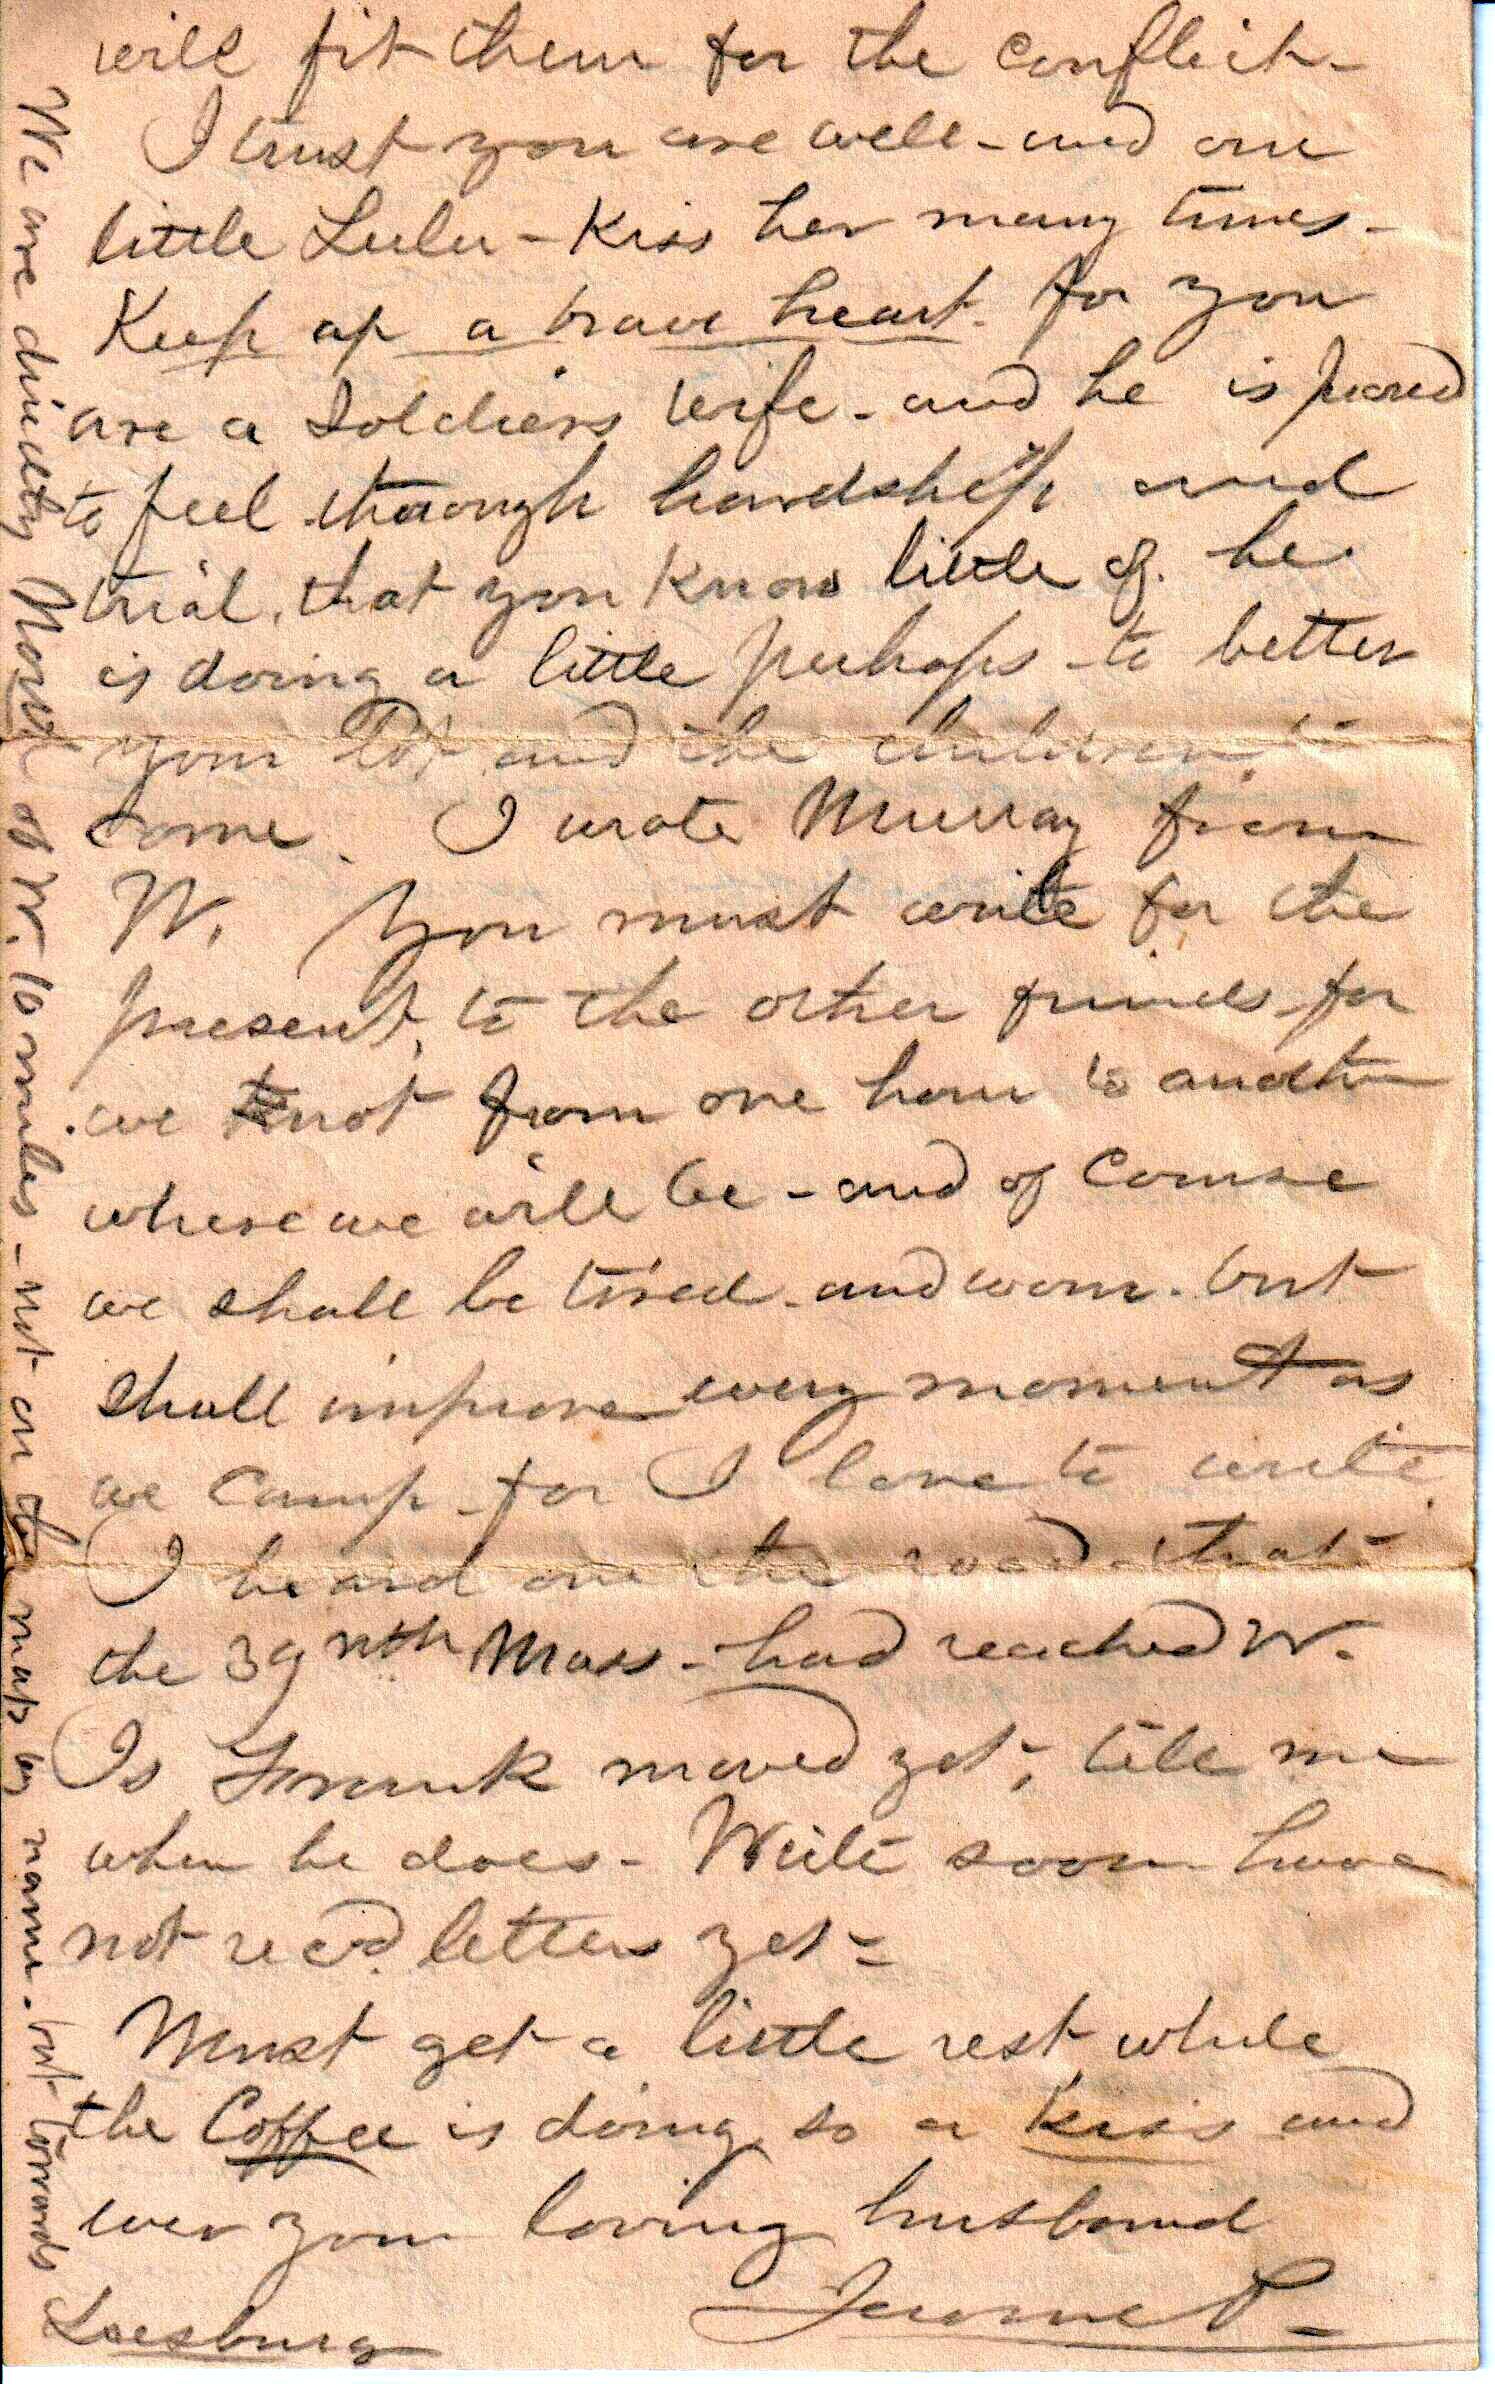 will fit them for the conflict-
I trust you are well - and our
little Lulu - Kiss her many times -
Keep up a brave heart. for you
are a Soldiers wife - and he is proud
to feel through hardship and
trial, that you know little of. he
is doing a little perhaps to better
your lot and the children to
come. I wrote Murray from
W. You must write for the
present, to the other friends for
we not from one hour to another
where we will be - and of course
we shall be tired - and worn. but
shall improve every moment as
we camp - for I love to write.
I heard on the road that
the 39 nth Mass - had reached W.
Is Frank moved yet; tell me
when he does - Write soon have
not rec'd letters yet =
Must get a little rest while
the Coffee is doing so a Kiss and
ever your loving husband
Jerome P. -
We are directly North of W. 10 miles - not on the map by name - but towards
Leesburg